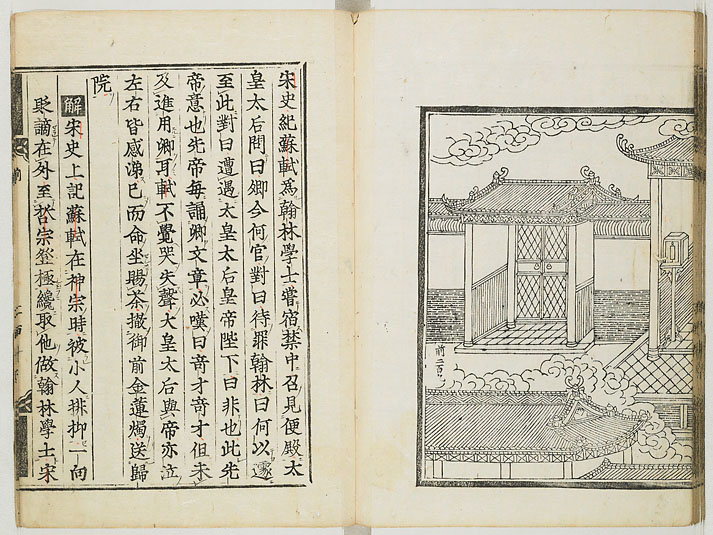 前二百
宋史紀蘇軾爲翰林學士嘗宿禁中召見便殿太
皇太后問曰卿今何官對曰待罪翰林曰何以遽
至此對曰遭遇太皇太后皇帝陛下曰非也此先
帝意也先帝每誦卿文章必嘆曰竒才竒才但未
及進用卿耳軾不覺哭失聲大皇太后與帝亦泣
左右皆感涕已而命坐賜茶撤御前金蓮燭送歸
院
解宋史上記蘇軾在神宗時被小人排抑一向
貶謫在外至哲宗登極纔取他做翰林學士宋